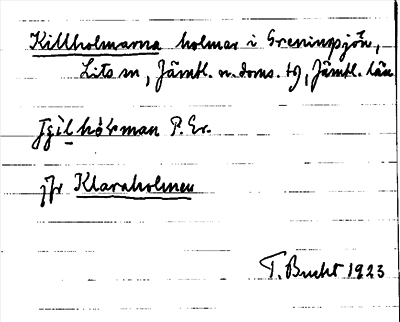 Killholmarna holmar i Greningsjön,
Lits sn, Jämtl. n. doms. tg, Jämtl. län
P. Er.
jfr Klaraholmen
T. Bucht 1923